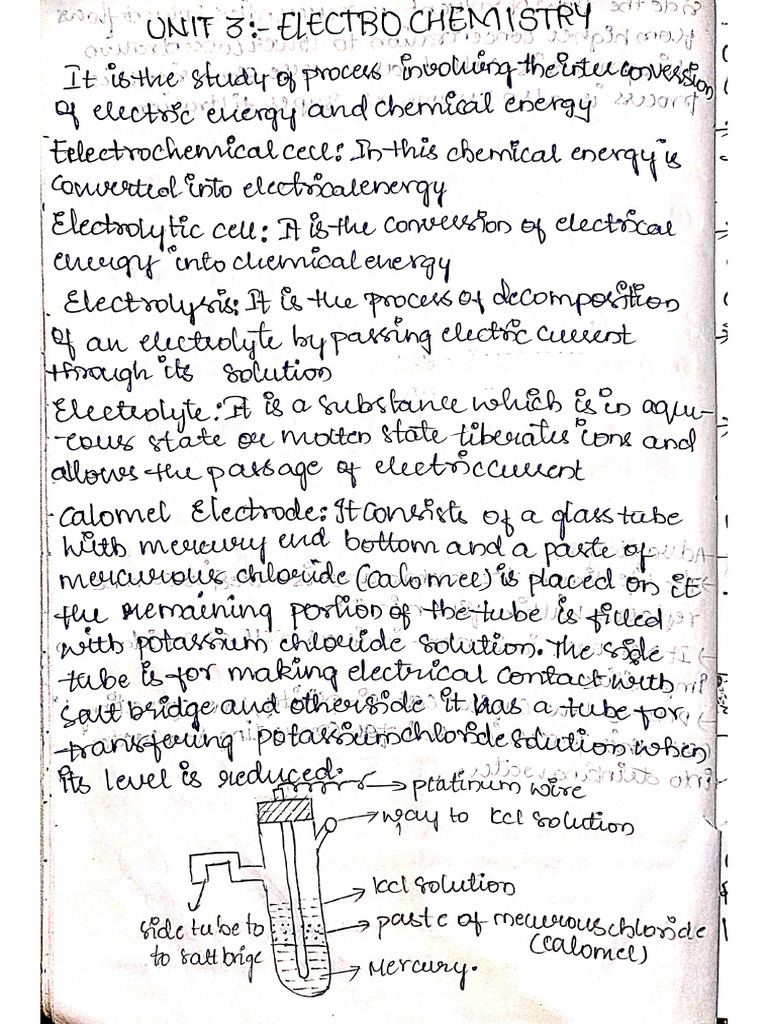 UNIT 3:- ELECTROCHEMISTRY
It is the study of process involving the inter conversion
of electric energy and chemical energy
Eelectrochemical cell: In this chemical energy is
converted into electrical energy
Electrolytic cell: It is the conversion of electrical
energy into chemical energy
Electrolysis: It is the process of decomposition
of an electrolyte by passing electric current
through its solution
Electrolyte: It is a substance which is in aque-
eous state or molten state liberates ions and
allows the passage of electric current
Calomel Electrode: It consists of a glass tube
with mercury end bottom and a paste of
mercurous chloride (calomel) is placed on it
the remaining portion of the tube is filled
with potassium chloride solution. The side
tube is for making electrical contact with
salt bridge and other side it has a tube for
transfering potassium chloride solution when
its level is reduced.
platinum wire
way to kcl solution
kcl solution
side tube to
to salt brige
paste of mecurous chloride
(calomel)
Mercury.